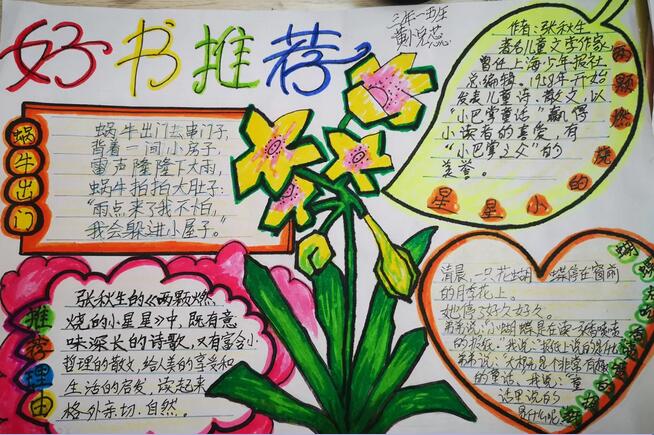 好书推荐
三年一班
蜗牛出门
蜗牛出门去串门子,
背着一间小房子,
雷声隆隆下大雨,
蜗牛拍拍大肚子:
“雨点来了我不怕,
我会躲进小屋子。”
作者:张秋生
著名儿童文学作家
曾任上海少年报社
总编辑。1958年开始
发表儿童诗、散文,以
“小巴掌童话”赢得
小读者的喜爱,有
“小巴掌之父”的
美誉。
两颗燃烧的小星星
推荐理由
张秋生的《两颗燃
烧的小星星》中,既有意
味深长的诗歌,又有富含小
哲理的散文,给人美的享受和
生活的启发,读起来
格外亲切、自然。
清晨一只花蝴蝶停在窗前
的月季花上。
她停了好久好久。
弟弟说:“
我说:“
弟弟说:“大概是个非常有趣
的童话。”我说:“童
话里说的
是什么呢